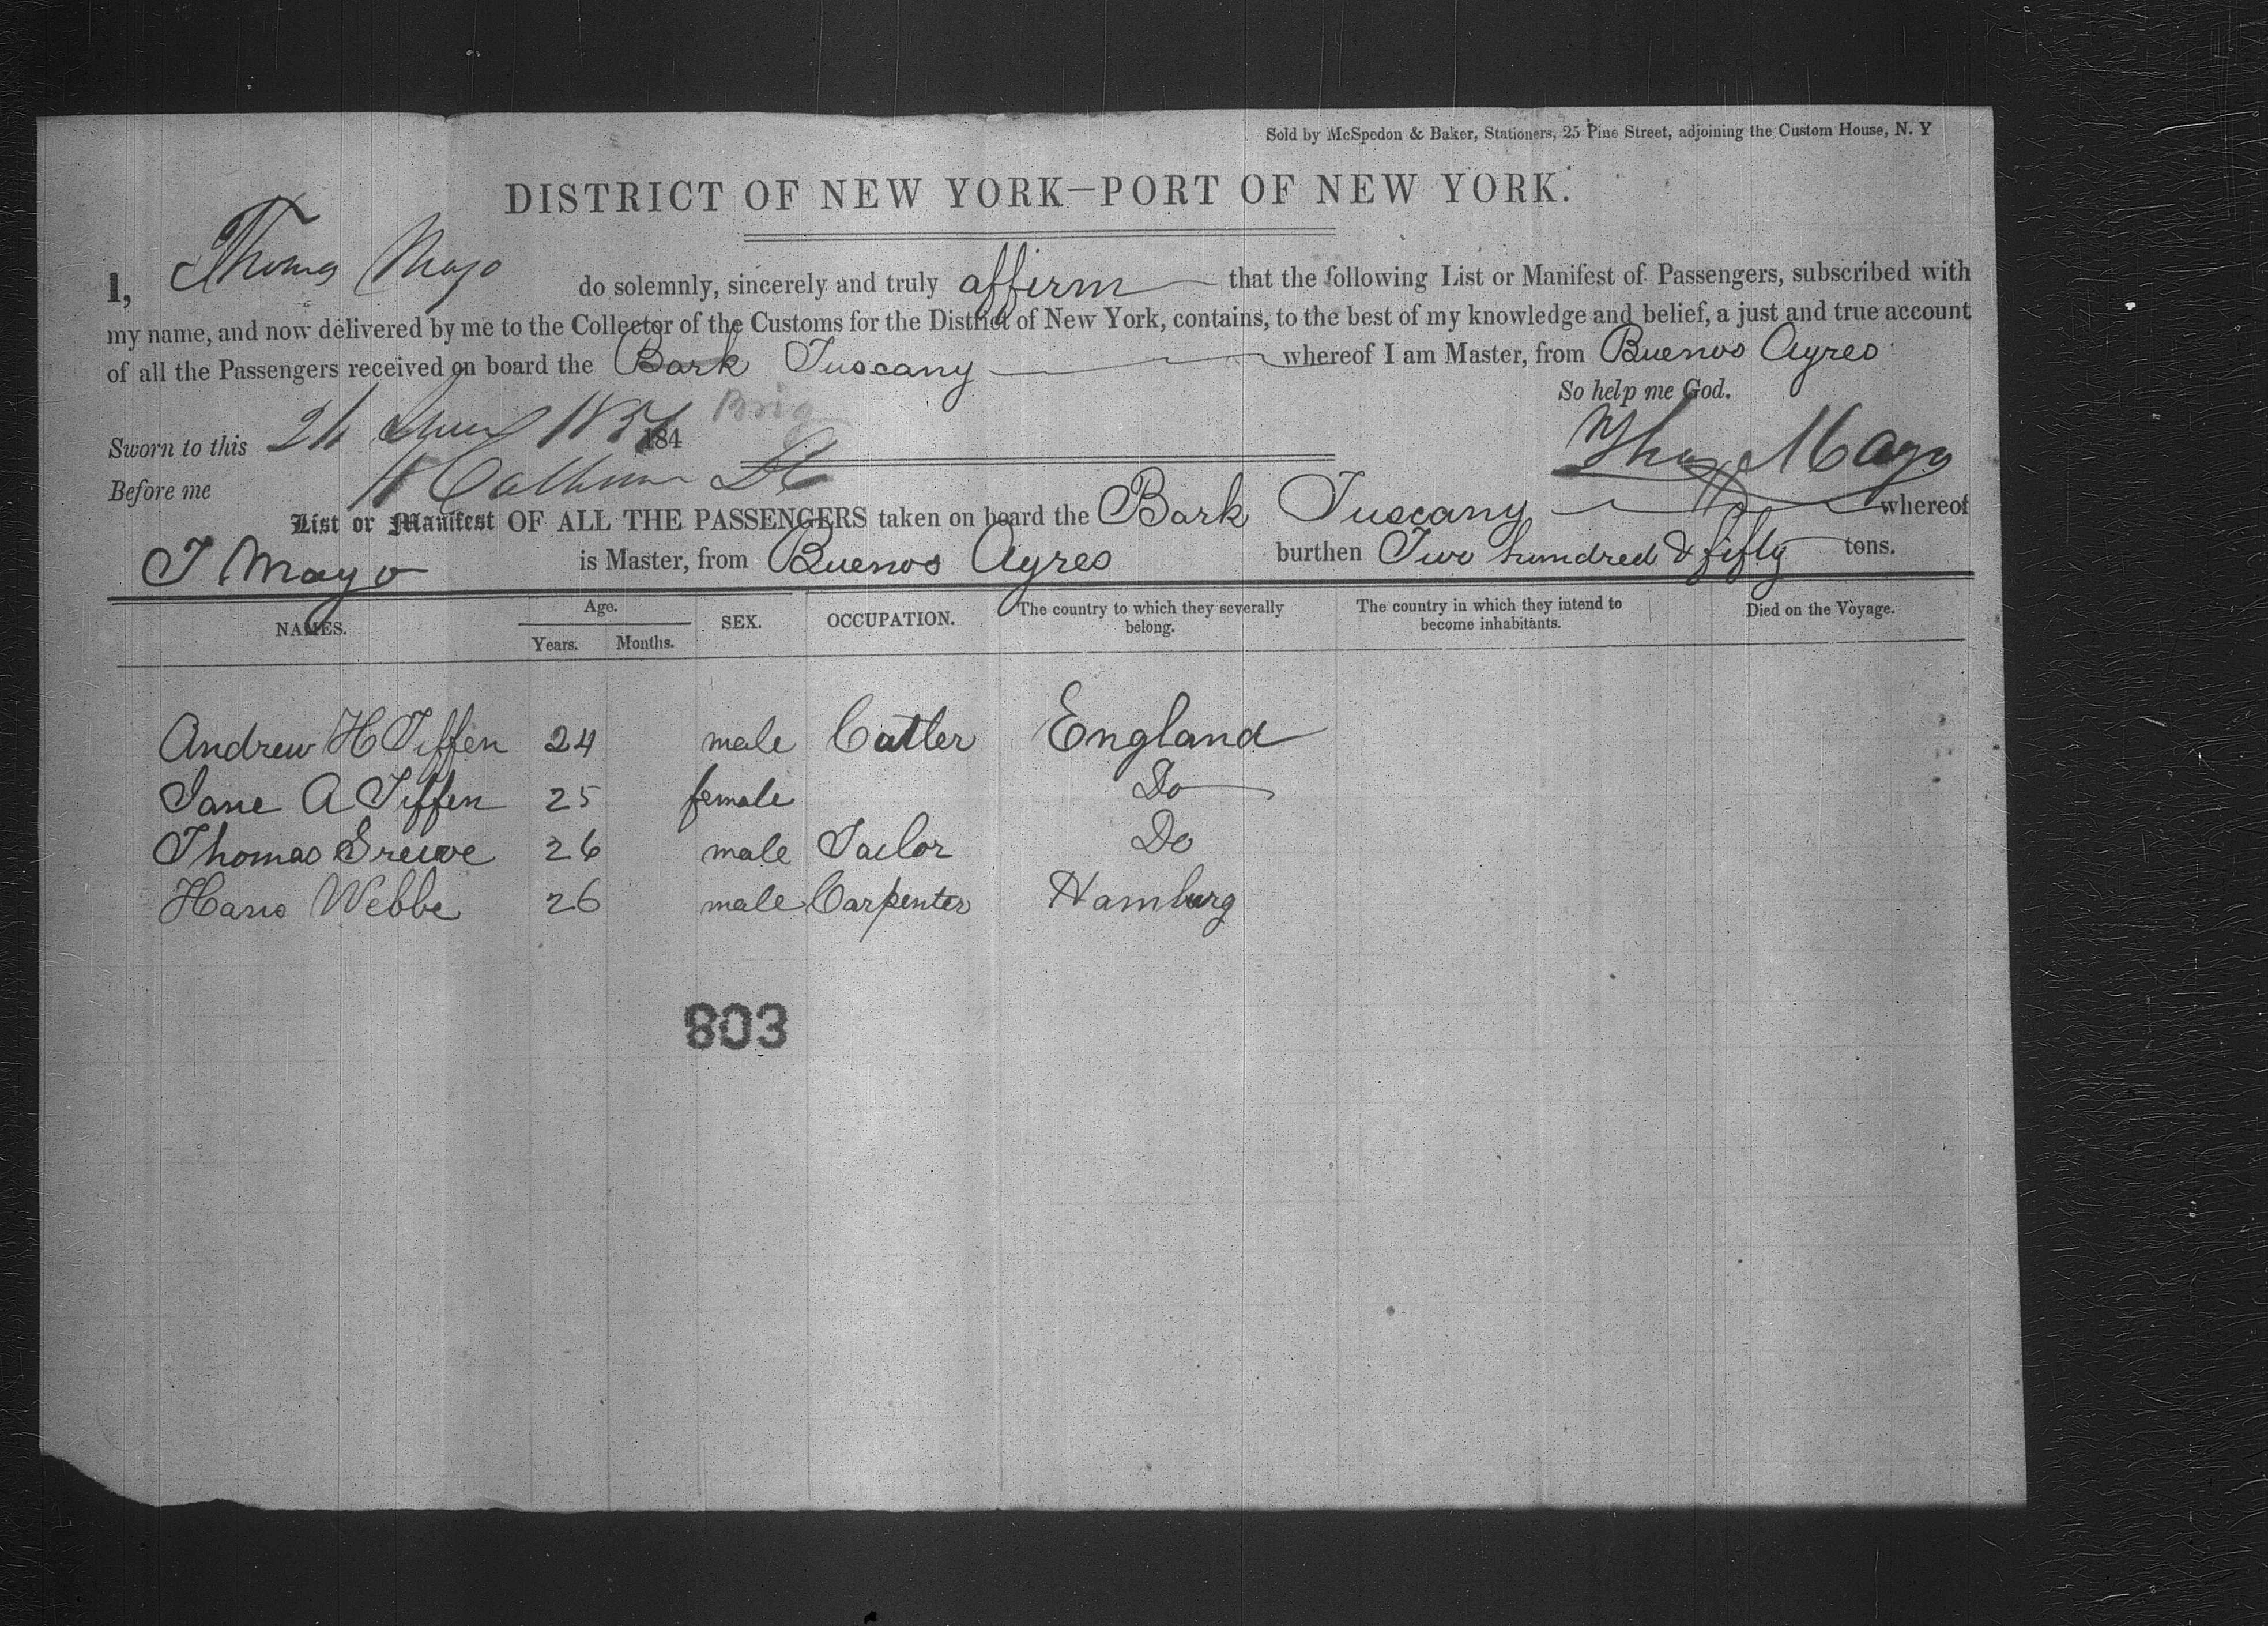 Sold by McSpedon & Baker, Stationers, 25 Pine Street, adjoining the Custom House, N. Y
DISTRICT OF NEW YORK—PORT OF NEW YORK.
I, Thomas Mayo do solemnly, sincerely and truly affirm that the following List or Manifest of Passengers, subscribed with
my name, and now delivered by me to the Collector of the Customs for the District of New York, contains, to the best of my knowledge and belief, a just and true account
of all the Passengers received on board the Bark Tuscany whereof I am Master, from Buenos Ayres
So help me God.
Brig
Sworn to this 184
Thos Mayo
Before me
List or Manifest OF ALL THE PASSENGERS taken on board the Bark Tuscany whereof
T Mayo is Master, from Buenos Ayres burthen Two hundred & fifty tons.
NAMES. Age. Years. Months. SEX. OCCUPATION. The country to which they severally belong. The country in which they intend to become inhabitants. Died on the Voyage.
Andrew H Tiffen 24 male Cutler England
Jane A Tiffen 25 female Do
Thomas 26 male Tailor Do
Hans Webbe 26 male Carpenter Hamburg
803